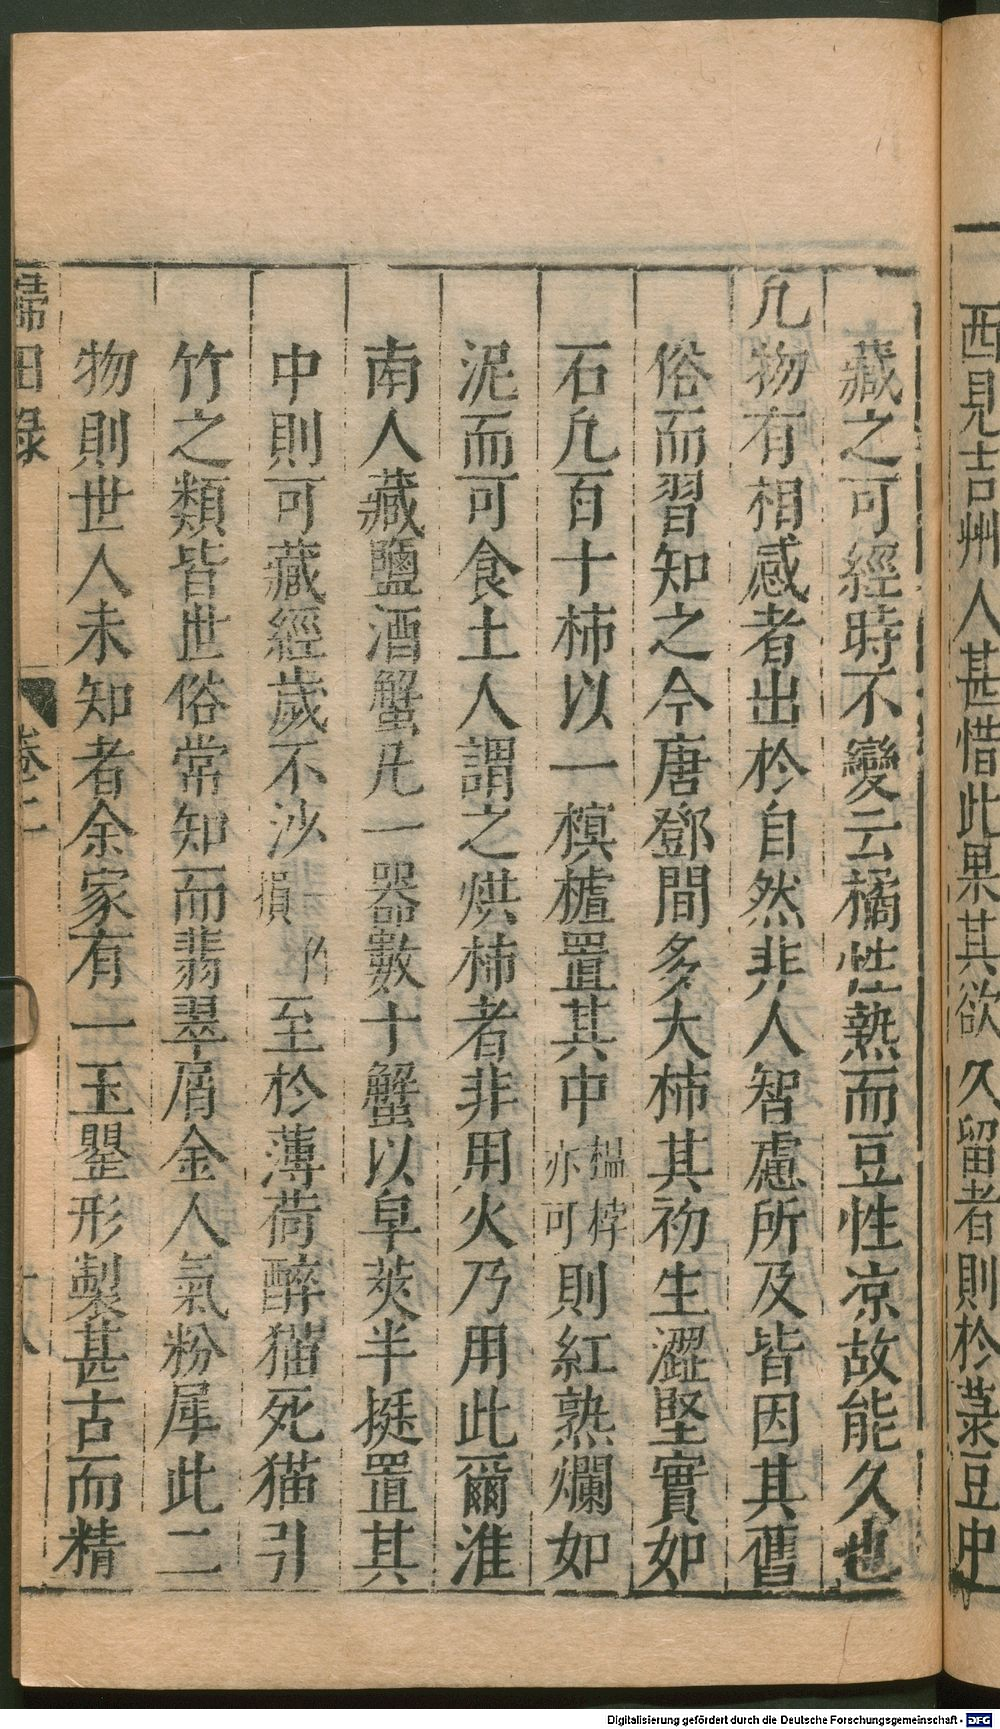 西見吉州人甚惜此果其欲久留者則於菉豆中
藏之可經時不變云橘性熱而豆性凉故能久也
凡物有相感者出於自然非人智慮所及皆因其舊
俗而習知之今唐鄧間多大柿其初生澀堅實如
石凡百十柿以一榠樝置其中榅桲亦可則紅熟爛如
泥而可食土人謂之烘柿者非用火乃用此爾淮
南人藏鹽酒蟹凡一器數十蟹以皁莢半挺置其
中則可藏經歲不沙損至於薄荷醉猫死猫引
竹之類皆世俗常知而翡翠屑金人氣粉犀此二
物則世人未知者余家有一玉罌形製甚古而精
歸田錄
卷二
十八
Digitalisierung gefördert durch die Deutsche Forschungsgemeinschaft - DFG